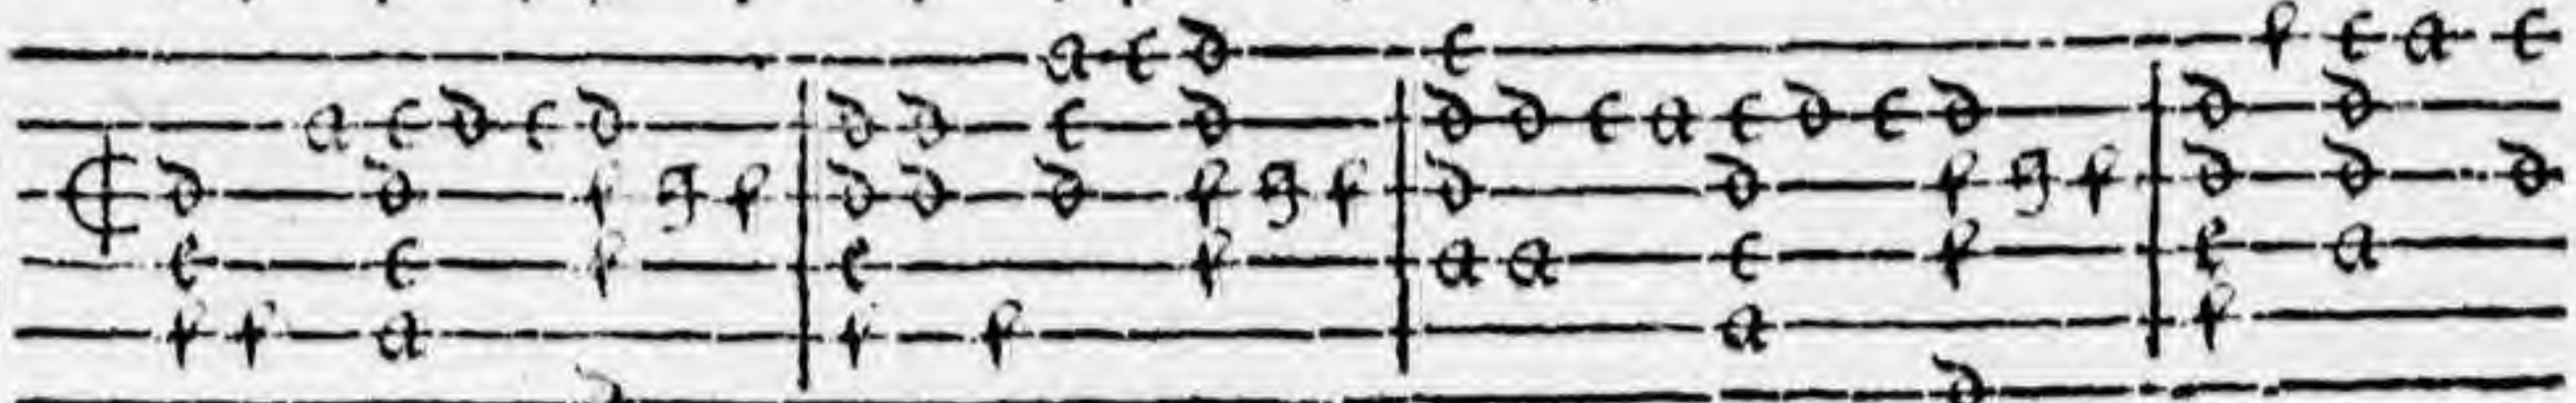 a c d c f c a c
a c d c d d d c d d d c a c d c d d d
d d f g f d d d f g f d d f g f d d d
c c f c f a a c f c a
f f a f f a f
d d